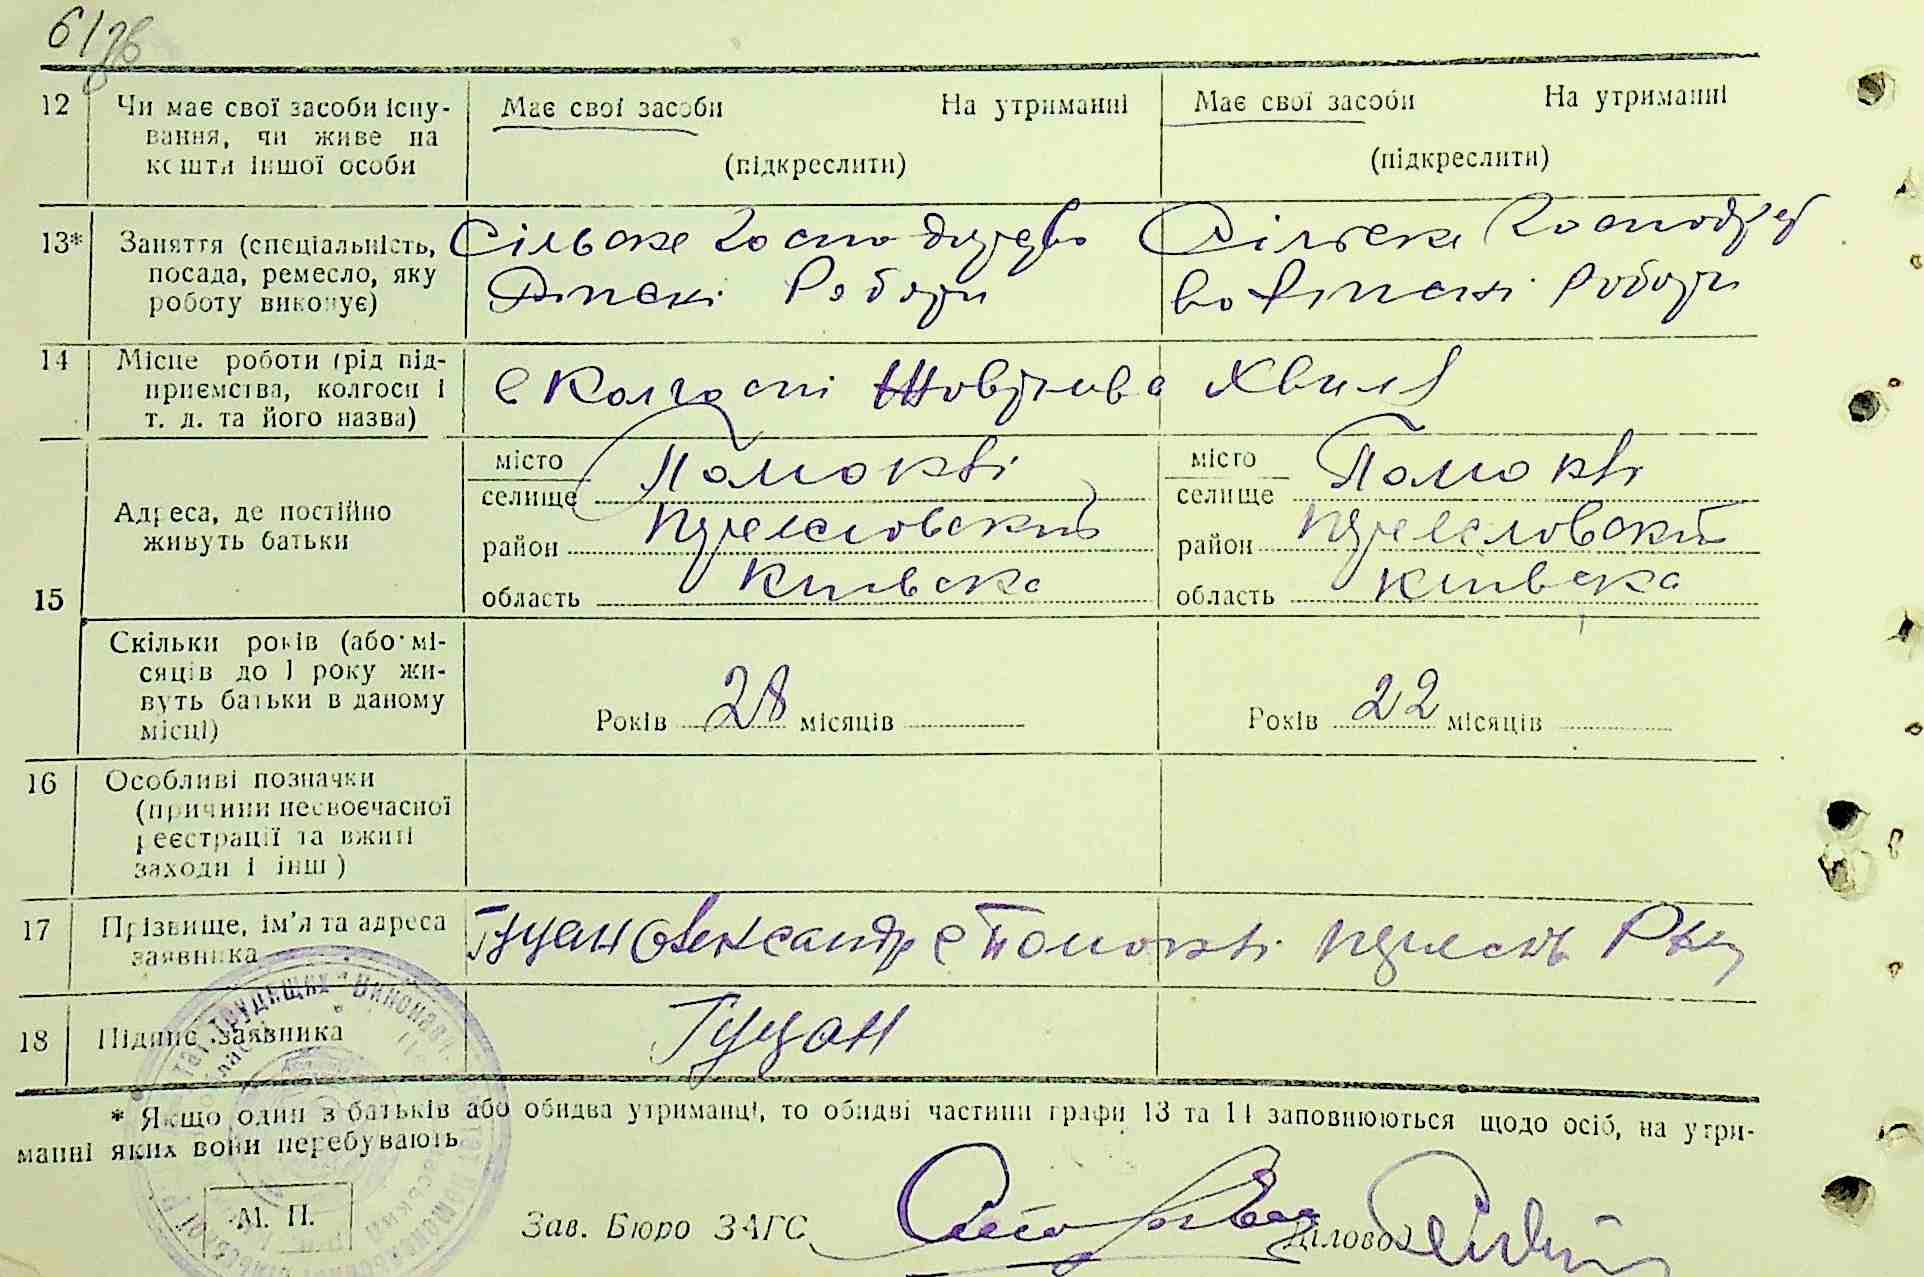 12 Чи має свої засоби існу-
вання, чи живе на
кошти іншої особи
Має свої засоби На утриманні
(підкреслити)
Має свої засоби На утриманні
(підкреслити)
13* Заняття (спеціальність,
посада, ремесло, яку
роботу виконує)
Сільске Господарство
Різні Роботи
Сільске Господарст
во Різні Роботи
14 Місце роботи (рід під-
приємства, колгосп і
т. д. та його назва)
с Колгоспі Жовтнева Хвиля
15 Адреса, де постійно
живуть батьки
місто
селище Помоклі
район
область Киівска
місто
селище Помоклі
район
область Киівска
Скільки років (або мі-
сяців до 1 року жи-
вуть батьки в даному
місці)
Років 28 місяців
Років 22 місяців
16 Особливі позначки
(причини несвоєчасної
реєстрації та вжиті
заходи і інш)
17 Прізвище, ім'я та адреса
заявника
Гуцан Олександр с Помоклі
18 Підпис заявника
Гуцан
* Якщо один з батьків або обидва утриманці, то обидві частини графи 13 та 14 заповнюються щодо осіб, на утри-
манні яких вони перебувають
М. П.
Зав. Бюро ЗАГС
Діловод